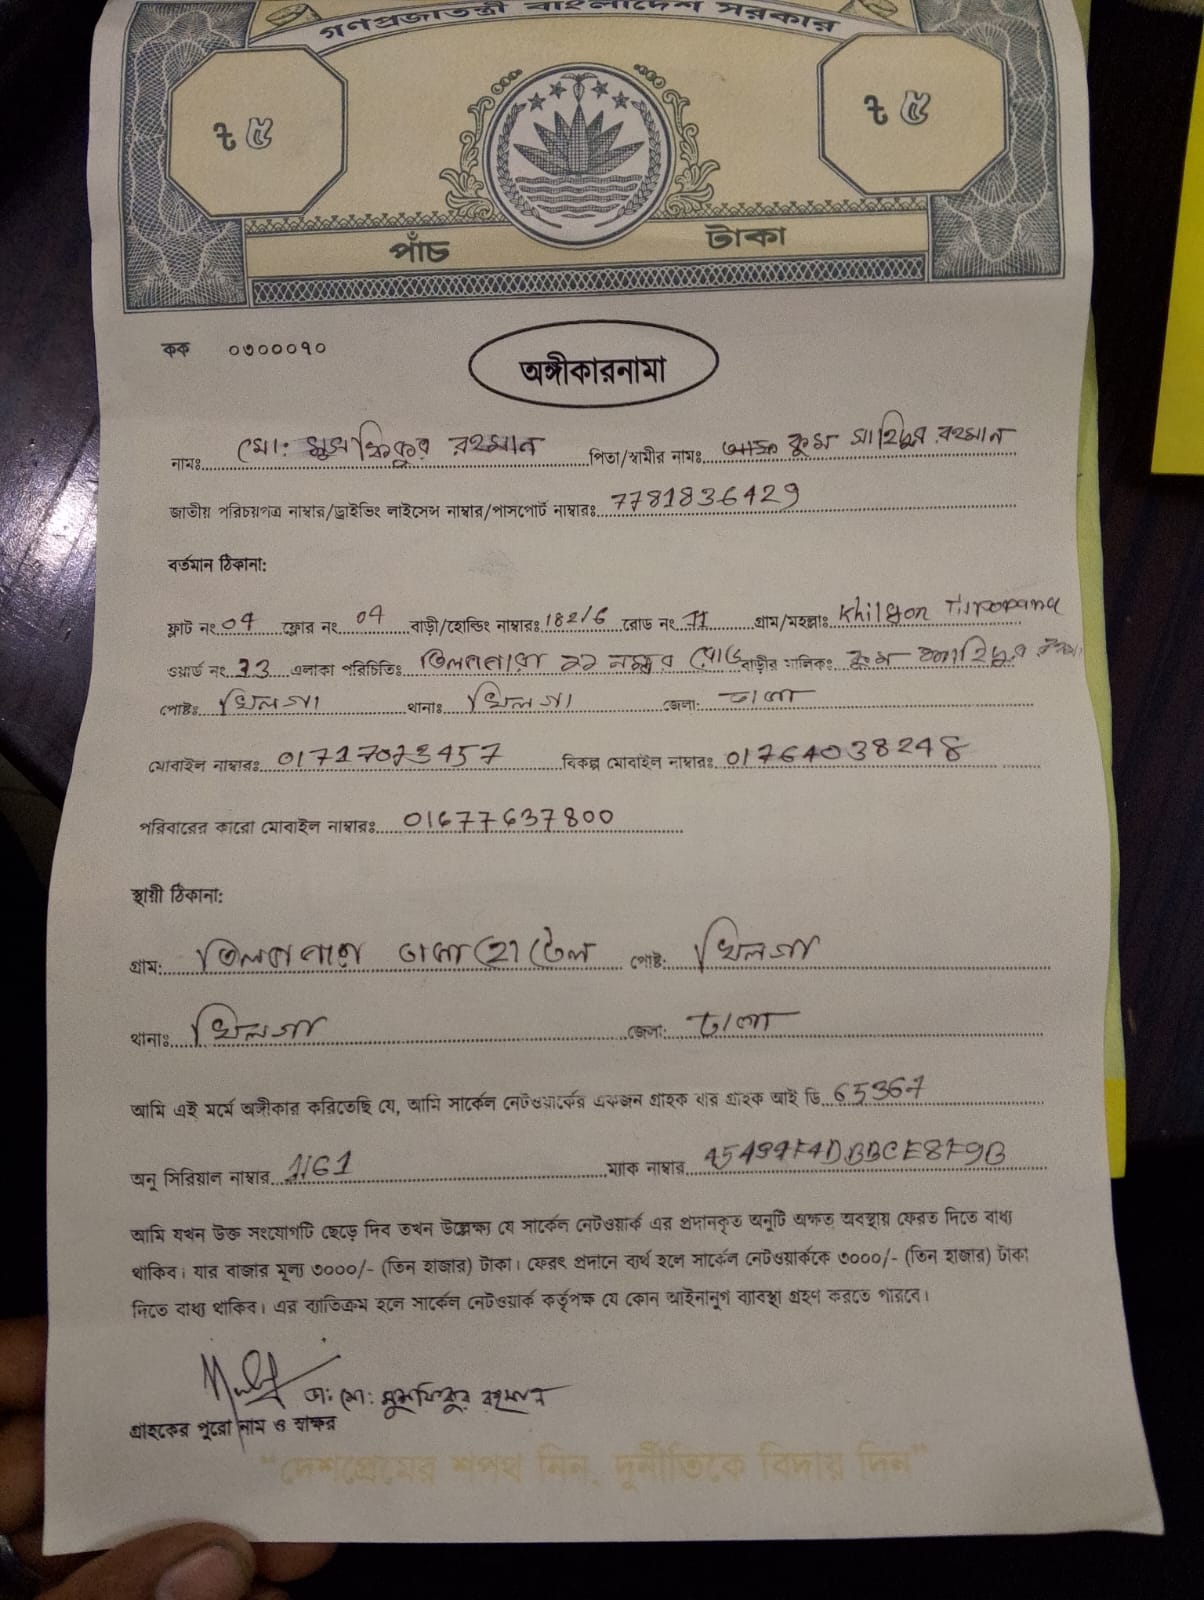 গণপ্রজাতন্ত্রী বাংলাদেশ সরকার
৳ ৫ ৳ ৫
পাঁচ টাকা
কক ০৩০০০৭০
অঙ্গীকারনামা
নামঃ মো: মুসফিকুর রহমান পিতা/স্বামীর নামঃ রহমান
জাতীয় পরিচয়পত্র নাম্বার/ড্রাইভিং লাইসেন্স নাম্বার/পাসপোর্ট নাম্বারঃ 7781836429
বর্তমান ঠিকানা:
ফ্লাট নং 04 ফ্লোর নং 04 বাড়ী/হোল্ডিং নাম্বারঃ 182/6 রোড নং 11 গ্রাম/মহল্লাঃ Khilgon
ওয়ার্ড নং 73 এলাকা পরিচিতিঃ তিলপাপারা ১১ নম্বর রোড বাড়ীর মালিকঃ
পোষ্টঃ খিলগা থানাঃ খিলগা জেলা: ঢাকা
মোবাইল নাম্বারঃ 01717073457 বিকল্প মোবাইল নাম্বারঃ 01764038248
পরিবারের কারো মোবাইল নাম্বারঃ 01677637800
স্থায়ী ঠিকানা:
গ্রাম: পোষ্ট: খিলগা
থানাঃ খিলগা জেলা: ঢাকা
আমি এই মর্মে অঙ্গীকার করিতেছি যে, আমি সার্কেল নেটওয়ার্কের একজন গ্রাহক যার গ্রাহক আই ডি 65367
অনু সিরিয়াল নাম্বার 1161 ম্যাক নাম্বার
আমি যখন উক্ত সংযোগটি ছেড়ে দিব তখন উল্লেক্ষ্য যে সার্কেল নেটওয়ার্ক এর প্রদানকৃত অনুটি অক্ষত অবস্থায় ফেরত দিতে বাধ্য
থাকিব। যার বাজার মূল্য ৩০০০/- (তিন হাজার) টাকা। ফেরৎ প্রদানে ব্যর্থ হলে সার্কেল নেটওয়ার্ককে ৩০০০/- (তিন হাজার) টাকা
দিতে বাধ্য থাকিব। এর ব্যতিক্রম হলে সার্কেল নেটওয়ার্ক কর্তৃপক্ষ যে কোন আইনানুগ ব্যাবস্থা গ্রহণ করতে পারবে।
ডা: মো: মুসফিকুর রহমান
গ্রাহকের পুরো নাম ও স্বাক্ষর
"দেশপ্রেমের শপথ নিন, দুর্নীতিকে বিদায় দিন"